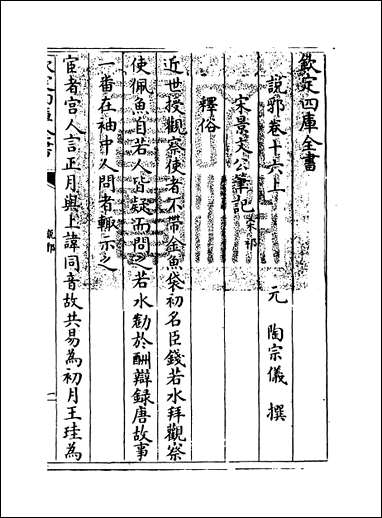 欽定四庫全書
說郛卷十六上
元 陶宗儀 撰
宋景文公筆記宋祁
釋俗
近世授觀察使者不帶金魚袋初名臣錢若水拜觀察
使佩魚自若人皆疑而問之若水勸於酬辯録唐故事
一番在袖中人問者輙示之
宦者宫人言正月與上諱同音故共易為初月王珪為
說郛
一